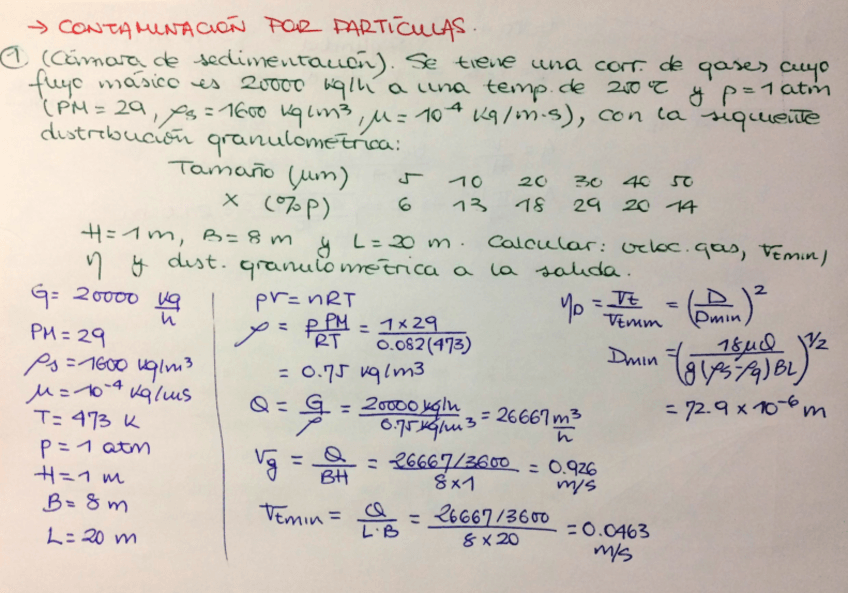 → CONTAMINACIÓN POR PARTÍCULAS.
① (Cámara de sedimentación). Se tiene una corr. de gases cuyo
flujo másico es 20000 kg/h a una temp. de 200 ºC y p = 1 atm
(PM = 29, ρs = 1600 kg/m³, μ = 10⁻⁴ kg/m·s), con la siguiente
distribución granulométrica:
Tamaño (μm) 5 10 20 30 40 50
X (%p) 6 13 18 29 20 14
H = 1 m, B = 8 m y L = 20 m. Calcular: veloc. gas, vtmin,
η y dist. granulométrica a la salida.
G = 20000 kg/h
PM = 29
ρs = 1600 kg/m³
μ = 10⁻⁴ kg/ms
T = 473 K
P = 1 atm
H = 1 m
B = 8 m
L = 20 m
pV = nRT
ρ = P PM/RT = 1 x 29/0.082(473)
= 0.75 kg/m³
Q = G/ρ = 20000 kg/h/0.75 kg/m³ = 26667 m³/h
vg = Q/BH = 26667/3600/8 x 1 = 0.926 m/s
vtmin = Q/L·B = 26667/3600/8 x 20 = 0.0463 m/s
ηD = vt/vtmin = (D/Dmin)²
Dmin = (18μQ/g(ρs-ρg)BL)^1/2
= 72.9 x 10⁻⁶ m